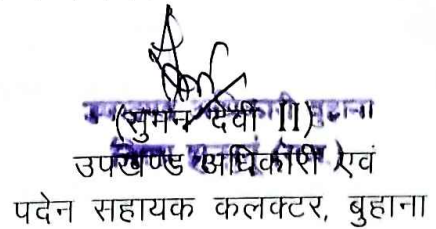 (सुमन देवी II)
उपखण्ड अधिकारी एवं
पदेन सहायक कलक्टर, बुहाना